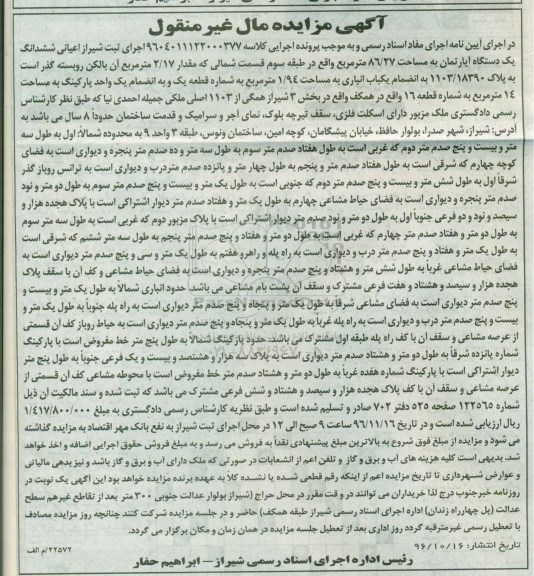 آگهی مزایده مال غیر منقول
در اجرای آیین نامه اجرای مفاد اسناد رسمی و به موجب پرونده اجرایی کلاسه ۹۶۰۴۰۱۱۱۳۲۰۰۰۳۷۷ اجرای ثبت شیراز اعیانی ششدانگ
یک دستگاه آپارتمان به مساحت ۸۶/۲۷ مترمربع واقع در طبقه سوم قسمت شمالی که مقدار ۲/۱۷ مترمربع آن بالکن روبسته گذر است
به پلاک ۱۱۰۳/۱۸۳۹۰ به انضمام یکباب انباری به مساحت ۱/۹۴ مترمربع به شماره قطعه یک و به انضمام یک واحد پارکینگ به مساحت
۱۴ مترمربع به شماره قطعه ۱۶ واقع در همکف واقع در بخش ۳ شیراز همگی از ۱۱۰۳ اصلی ملکی جمیله احمدی نیا که طبق نظر کارشناس
رسمی دادگستری ملک مزبور دارای اسکلت فلزی، سقف تیرچه بلوک، نمای آجر و سرامیک و قدمت ساختمان حدودا ۸ سال می باشد به
آدرس: شیراز، شهر صدرا، بولوار حافظ، خیابان پیشگامان، کوچه امین، ساختمان ونوس، طبقه ۳ واحد ۹ به محدوده شمالاً: اول به طول سه
متر و بیست و پنج صدم متر دوم که غربی است به طول هفتاد صدم متر سوم به طول سه متر و ده صدم متر پنجره و دیواری است به فضای
کوچه چهارم که شرقی است به طول هفتاد صدم متر و پنجم به طول چهار متر و پانزده صدم متر درب و دیواری است به تراس روباز گذر
شرقاً اول به طول شش متر و بیست و پنج صدم متر دوم که جنوبی است به طول یک متر و بیست و پنج صدم متر سوم به طول دو متر و نود
صدم متر پنجره و دیواری است به فضای حیاط مشاعی چهارم به طول یک متر و هفتاد صدم متر دیوار اشتراکی است با پلاک هجده هزار و
سیصد و نود و دو فرعی جنوباً اول به طول دو متر و نود صدم متر دیوار اشتراکی است با پلاک مزبور دوم که غربی است به طول سه متر سوم
به طول دو متر و هفتاد صدم متر چهارم که غربی است به طول دو متر و هفتاد و پنج صدم متر پنجم به طول سه متر ششم که شرقی است
به طول یک متر و هفتاد و پنج صدم متر درب و دیواری است به راه پله و راهرو هفتم به طول یک متر و سی و پنج صدم متر دیواری است به
فضای حیاط مشاعی غرباً به طول شش متر و هشتاد و پنج صدم متر پنجره و دیواری است به فضای حیاط مشاعی و کف آن با سقف پلاک
هجده هزار و سیصد و هشتاد و هفت فرعی مشترک و سقف آن پشت بام مشاعی می باشد. حدود انباری شمالاً به طول یک متر و بیست و
پنج صدم متر دیواری است به فضای مشاعی شرقاً به طول یک متر و پنجاه و پنج صدم متر دیواری است به راه پله جنوباً به طول یک متر و
بیست و پنج صدم متر درب و دیواری است به راه پله غرباً به طول یک متر و پنجاه و پنج صدم متر دیواری است به حیاط روباز کف آن قسمتی
از عرصه مشاعی و سقف آن با کف راه پله طبقه اول مشترک می باشد. حدود پارکینگ شمالاً به طول پنج متر خط مفروض است با پارکینگ
شماره پانزده شرقاً به طول دو متر و هشتاد صدم متر دیواری است به پلاک سه هزار و هشتصد و بیست و یک فرعی جنوباً به طول پنج متر
دیوار اشتراکی است با پارکینگ شماره هفده غرباً به طول دو متر و هشتاد صدم متر خط مفروض است با محوطه مشاعی کف آن قسمتی از
عرصه مشاعی و سقف آن با کف پلاک هجده هزار و سیصد و هشتاد و شش فرعی مشترک می باشد که ثبت شده و سند مالکیت آن ذیل
شماره ۱۲۲۵۶۵ صفحه ۵۲۵ دفتر ۷۰۲ صادر و تسلیم شده است و طبق نظریه کارشناس رسمی دادگستری به مبلغ ۱/۴۱۷/۸۰۰/۰۰۰
ریال ارزیابی شده است و در تاریخ ۹۶/۱۱/۱۶ ساعت ۹ صبح الی ۱۲ در محل اجرای ثبت شیراز به نفع بانک مهر اقتصاد به مزایده گذاشته
می شود و مزایده از مبلغ فوق شروع به بالاترین مبلغ پیشنهادی نقداً به فروش می رسد و به مبلغ فروش حقوق اجرایی اضافه و اخذ خواهد
شد. بدیهی است کلیه هزینه های آب و برق و گاز و تلفن اعم از انشعابات در صورتی که ملک دارای آب و برق و گاز باشد و نیز بدهی مالیاتی
و عوارض شهرداری تا تاریخ مزایده اعم از اینکه رقم قطعی شده یا نشده کلاً به عهده برنده مزایده خواهد بود این آگهی یک نوبت در
روزنامه خبر جنوب درج لذا خریداران می توانند در وقت مقرر در محل حراج (شیراز بولوار عدالت جنوبی ۳۰۰ متر بعد از تقاطع غیرهم سطح
عدالت (پل چهارراه زندان) اداره اجرای اسناد رسمی شیراز طبقه همکف) حاضر و در جلسه مزایده شرکت کنند چنانچه روز مزایده مصادف
با تعطیل رسمی غیرمترقبه گردد روز اداری بعد از تعطیل جلسه مزایده در همان زمان و مکان برگزار می گردد.
تاریخ انتشار: ۹۶/۱۰/۱۶
۲۲۵۷۲/م الف
رئیس اداره اجرای اسناد رسمی شیراز – ابراهیم حفار